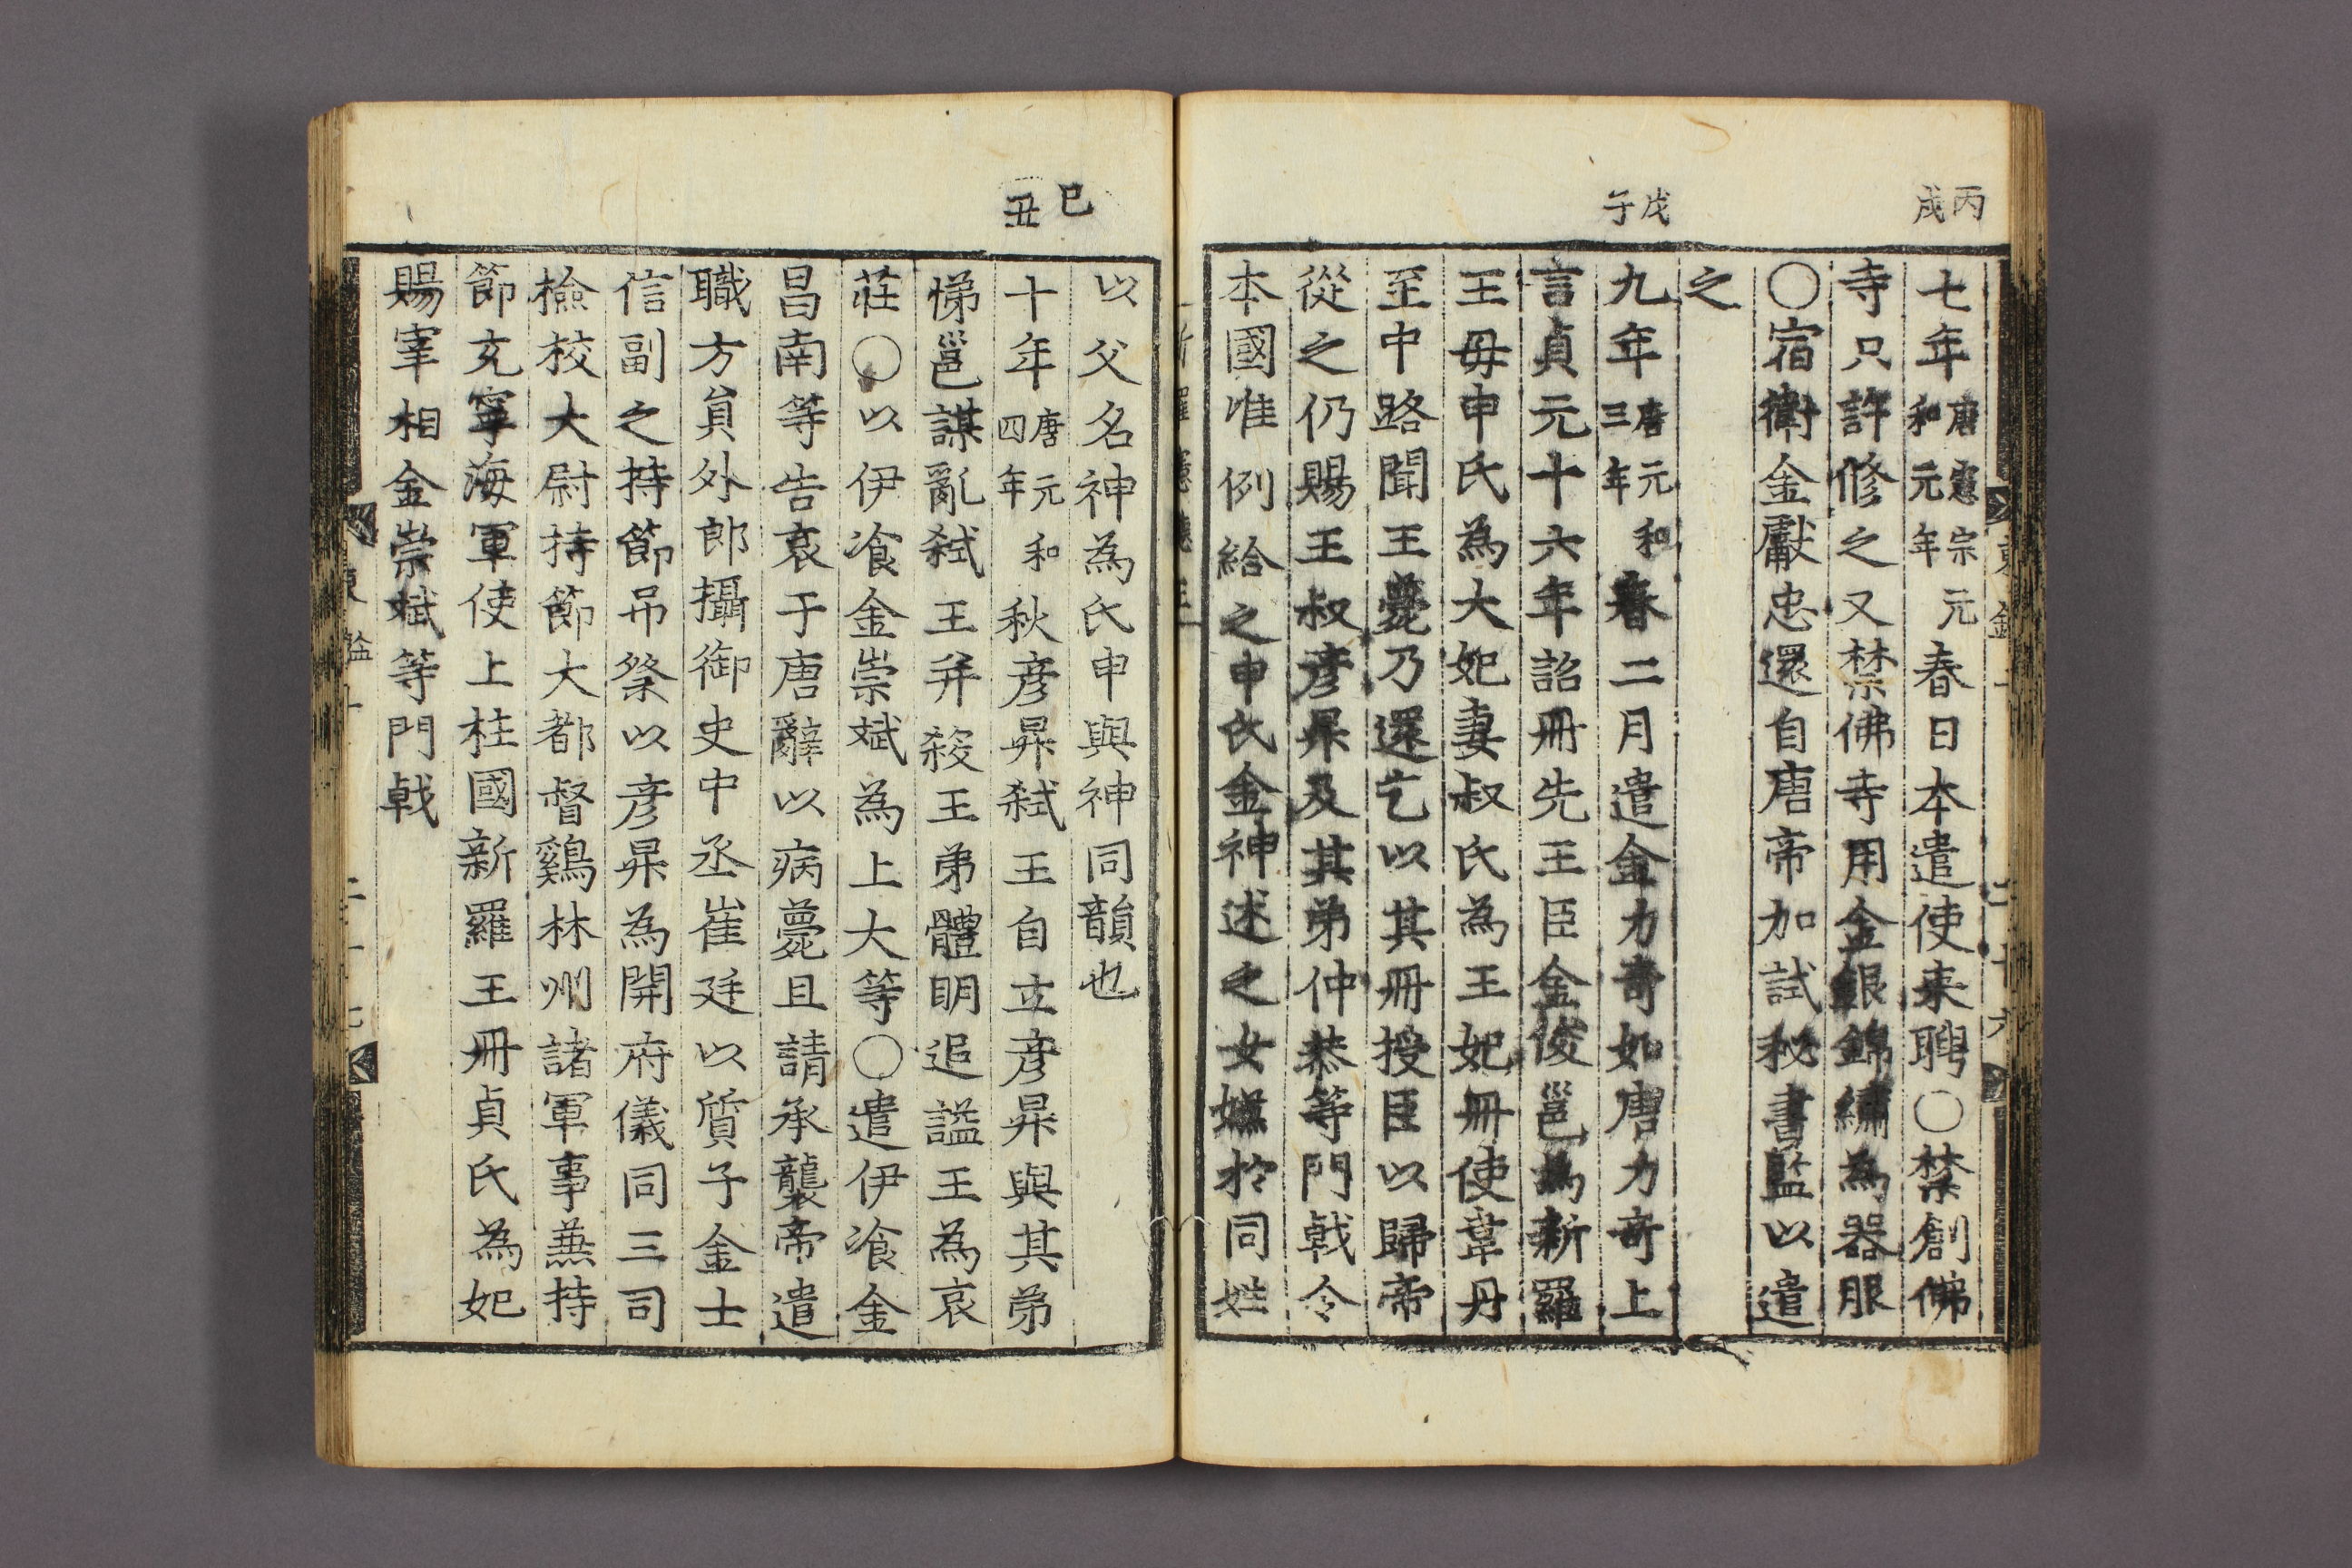 丙戌
七年唐憲宗元和元年春日本遣使來聘○禁創佛
寺只許修之又禁佛寺用金銀錦繡為器服
○宿衛金獻忠還自唐帝加試秘書監以遣
之
戊子
九年唐元和三年春二月遣金力奇如唐力奇上
言貞元十六年詔冊先王臣金俊邕為新羅
王母申氏為大妃妻叔氏為王妃冊使韋丹
至中路聞王薨乃還乞以其冊授臣以歸帝
從之仍賜王叔彦昇及其弟仲恭等門戟令
本國准例給之申氏金神述之女嫌於同姓
以父名神為氏申與神同韻也
己丑
十年唐元和四年秋彦昇弑王自立彦昇與其弟
悌邕謀亂弑王并殺王弟體明追謚王為哀
莊○以伊飡金崇斌為上大等○遣伊飡金
昌南等告哀于唐辭以病薨且請承襲帝遣
職方貟外郎攝御史中丞崔廷以質子金士
信副之持節吊祭以彦昇為開府儀同三司
檢校大尉持節大都督鷄林州諸軍事兼持
節充寧海軍使上柱國新羅王冊貞氏為妃
賜宰相金崇斌等門戟